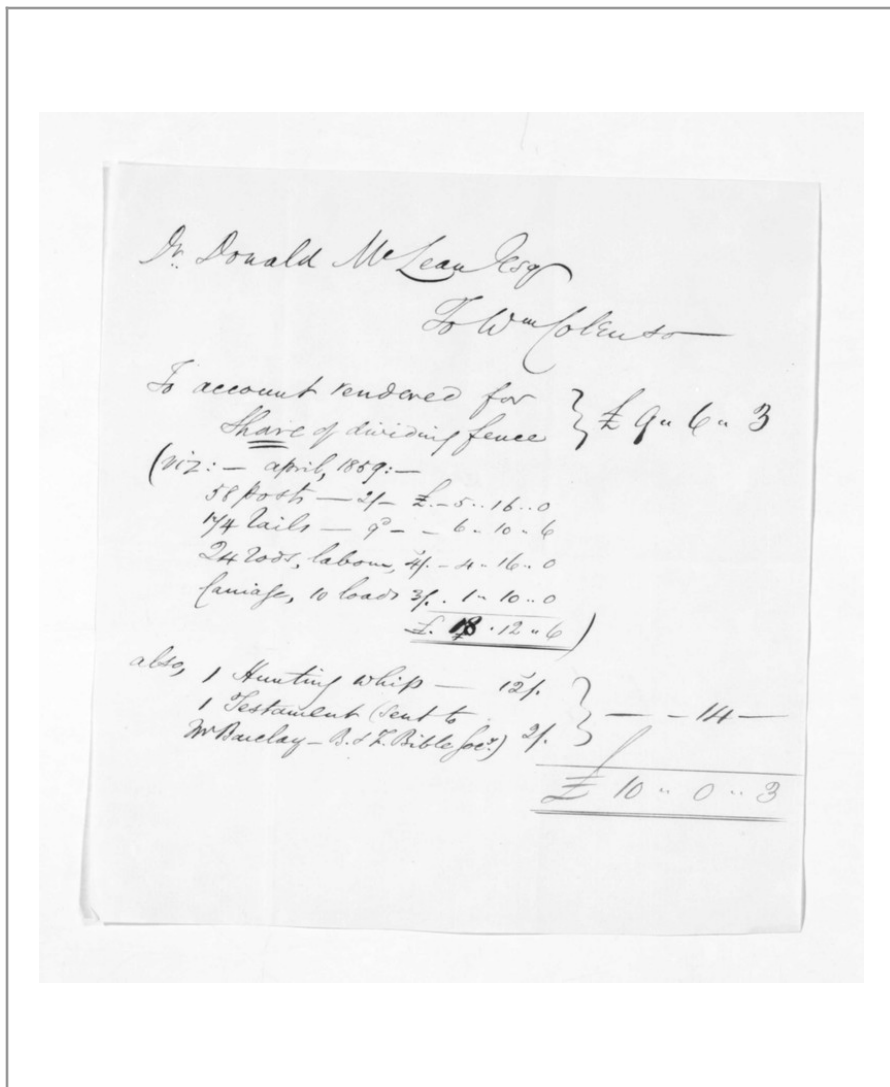 Dr. Donald McLean Esq
To Wm Colenso
To account rendered for } £ 9 " 6 " 3
Share of dividing fence
(viz: — April, 1859: —
58 posts — 2/- £. – 5 .. 16 .. 0
174 rails — 9d – – 6 – 10 – 6
24 rods, labour, 4/. – 4 – 16 .. 0
Carriage, 10 loads 3/. . 1 " 10 .. 0
£. 18 . 12 " 6 )
also, 1 Hunting whip — 12/. } — – 14 —
1 Testament (sent to
Mr Barclay – B. & F. Bible Socy.) 2/.
£ 10 " 0 " 3